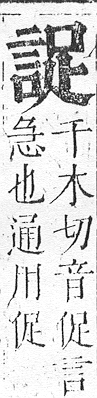 千木切音促言
急也通用促